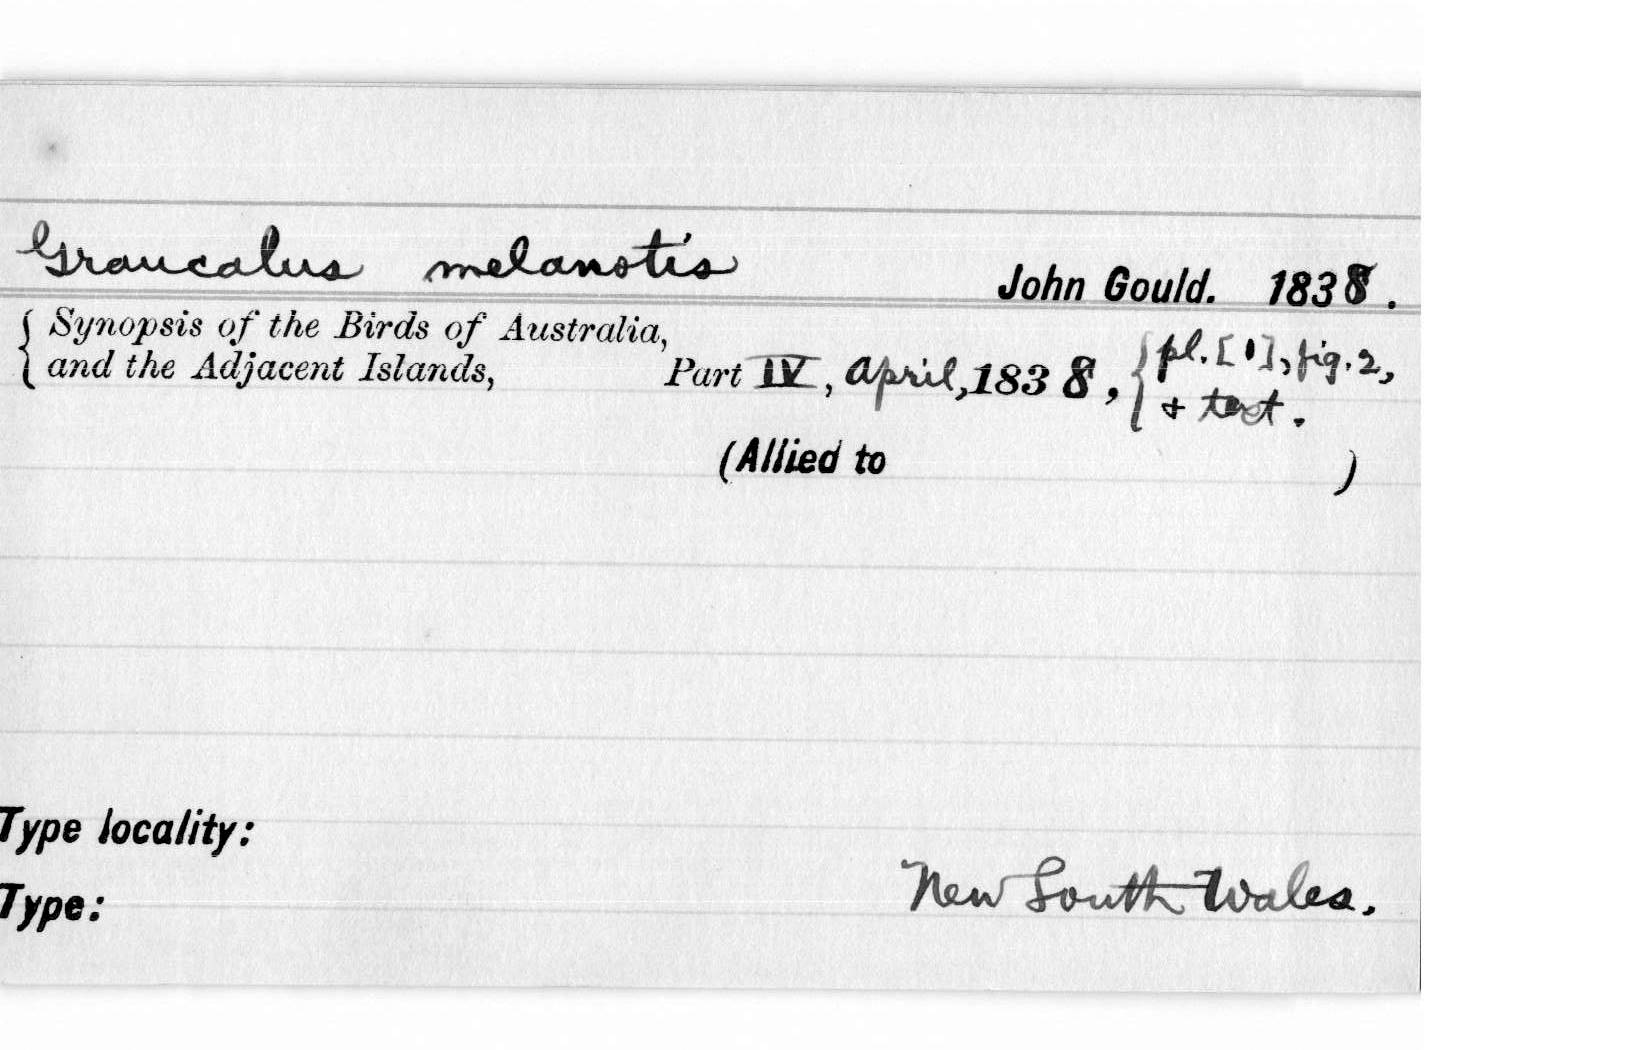 Graucalus melanotis John Gould. 1838.
{ Synopsis of the Birds of Australia,
and the Adjacent Islands, Part IV, April, 1838, { pl. [1], fig. 2,
+ text.
(Allied to )
Type locality:
New South Wales.
Type: